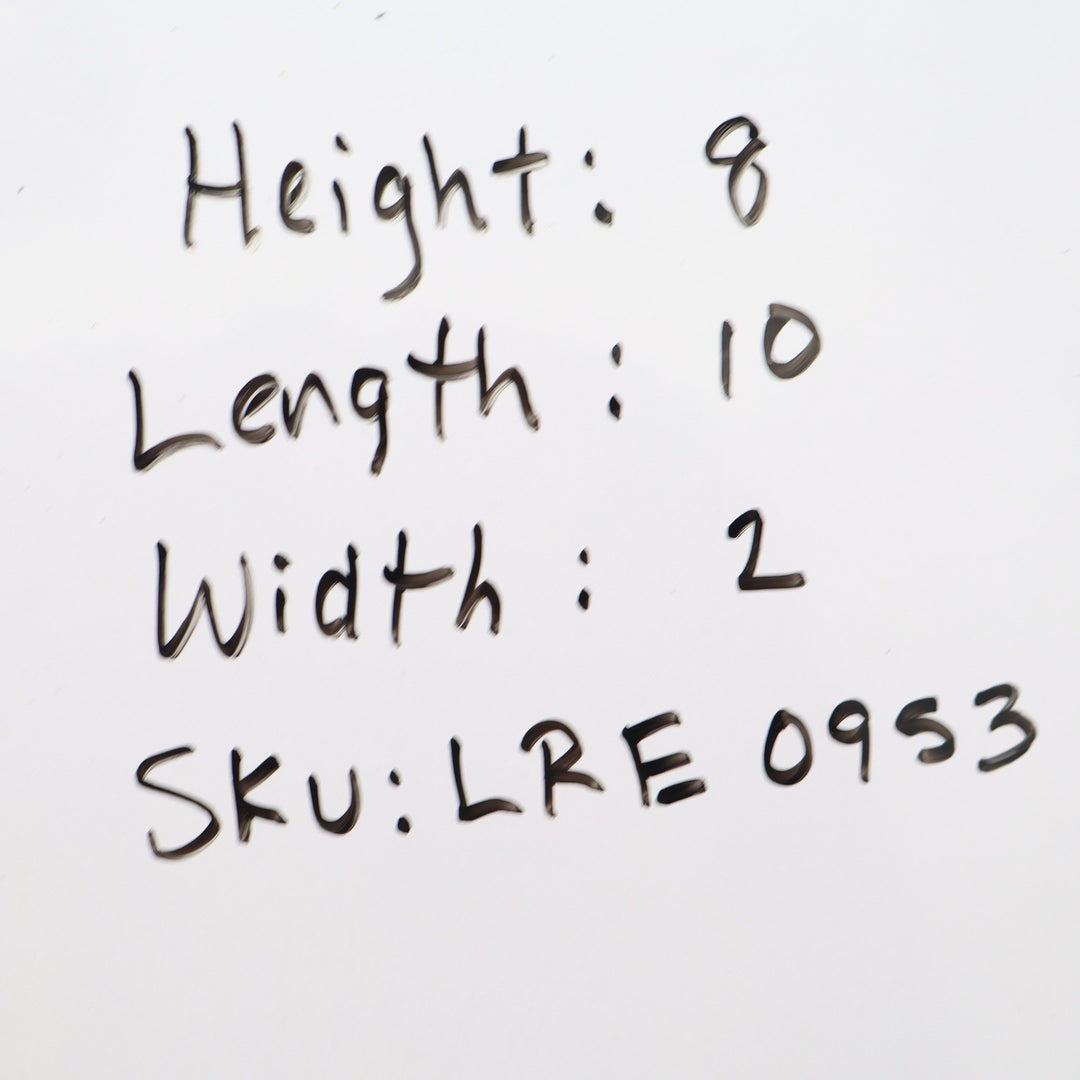 Height: 8
Length: 10
Width: 2
SKU: LRE 0953